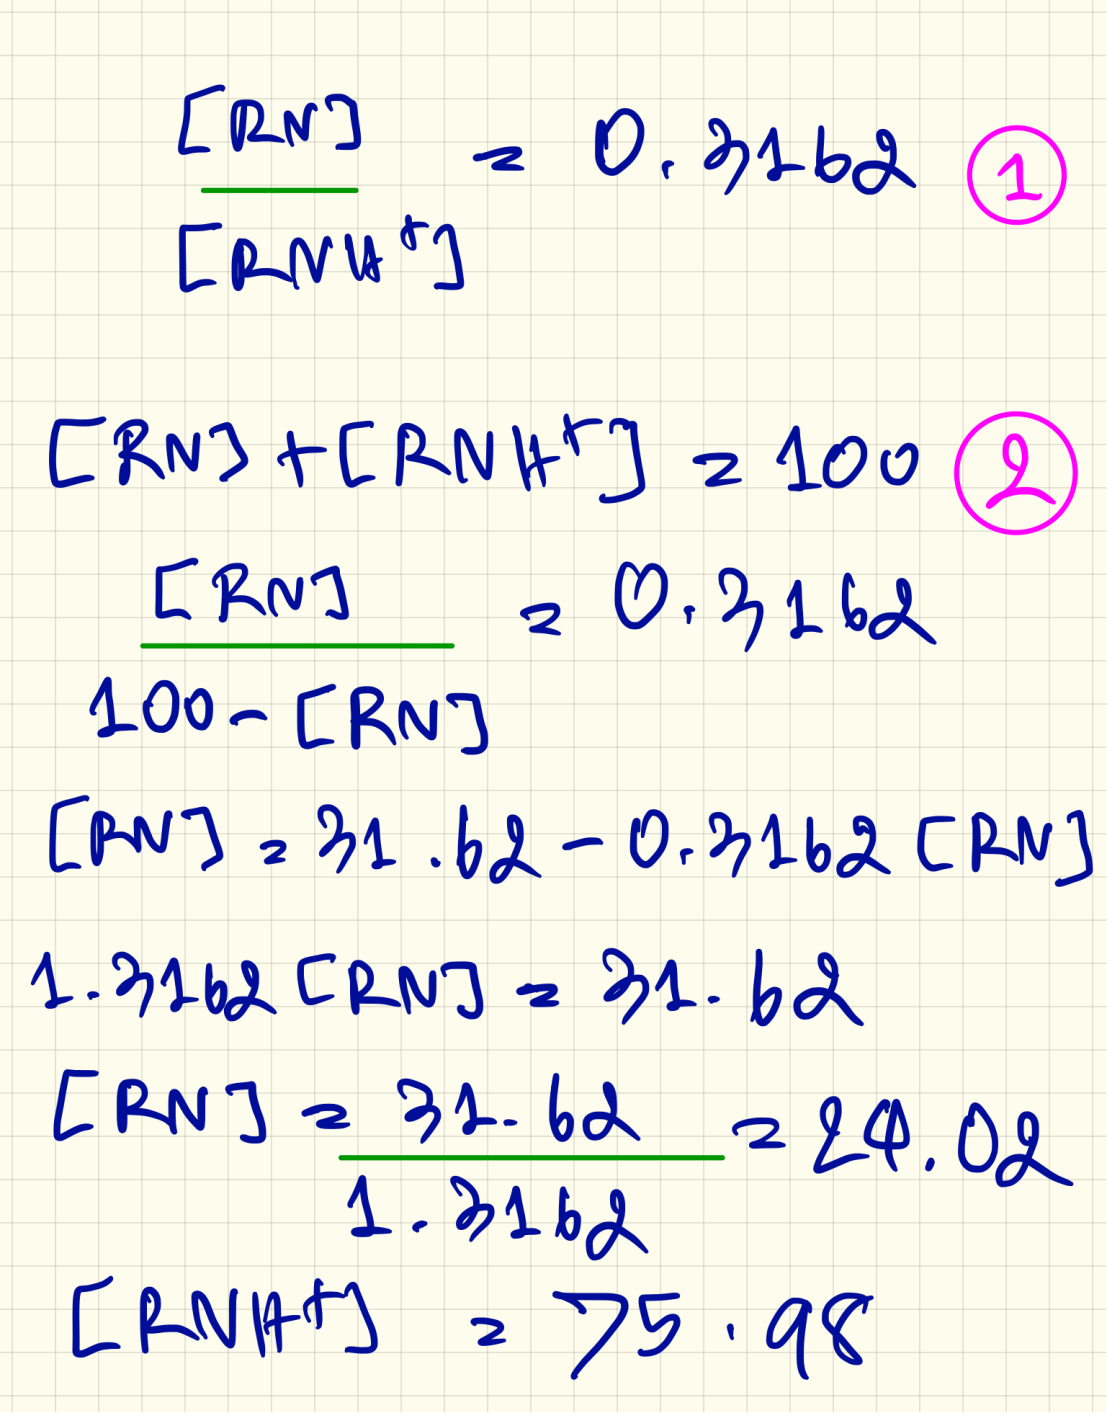 [RN]
= 0.3162 ①
[RNH⁺]
[RN] + [RNH⁺] = 100 ②
[RN]
= 0.3162
100 - [RN]
[RN] = 31.62 - 0.3162 [RN]
1.3162 [RN] = 31.62
[RN] = 31.62 = 24.02
1.3162
[RNH⁺] = 75.98